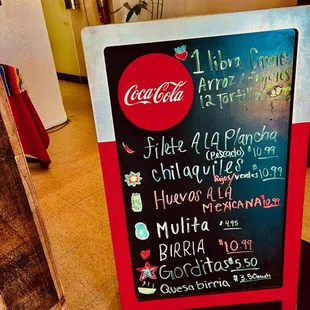 Coca-Cola
1 libra Carne
Arroz / Frijoles
12 Tortillas
filete A LA Plancha
(Pescado) $10.99
chilaquiles
Rojos/verdes $10.99
Huevos A LA
MEXICANA $10.99
Mulita $4.95
BIRRIA $10.99
Gorditas $5.50
Quesabirria $3.50